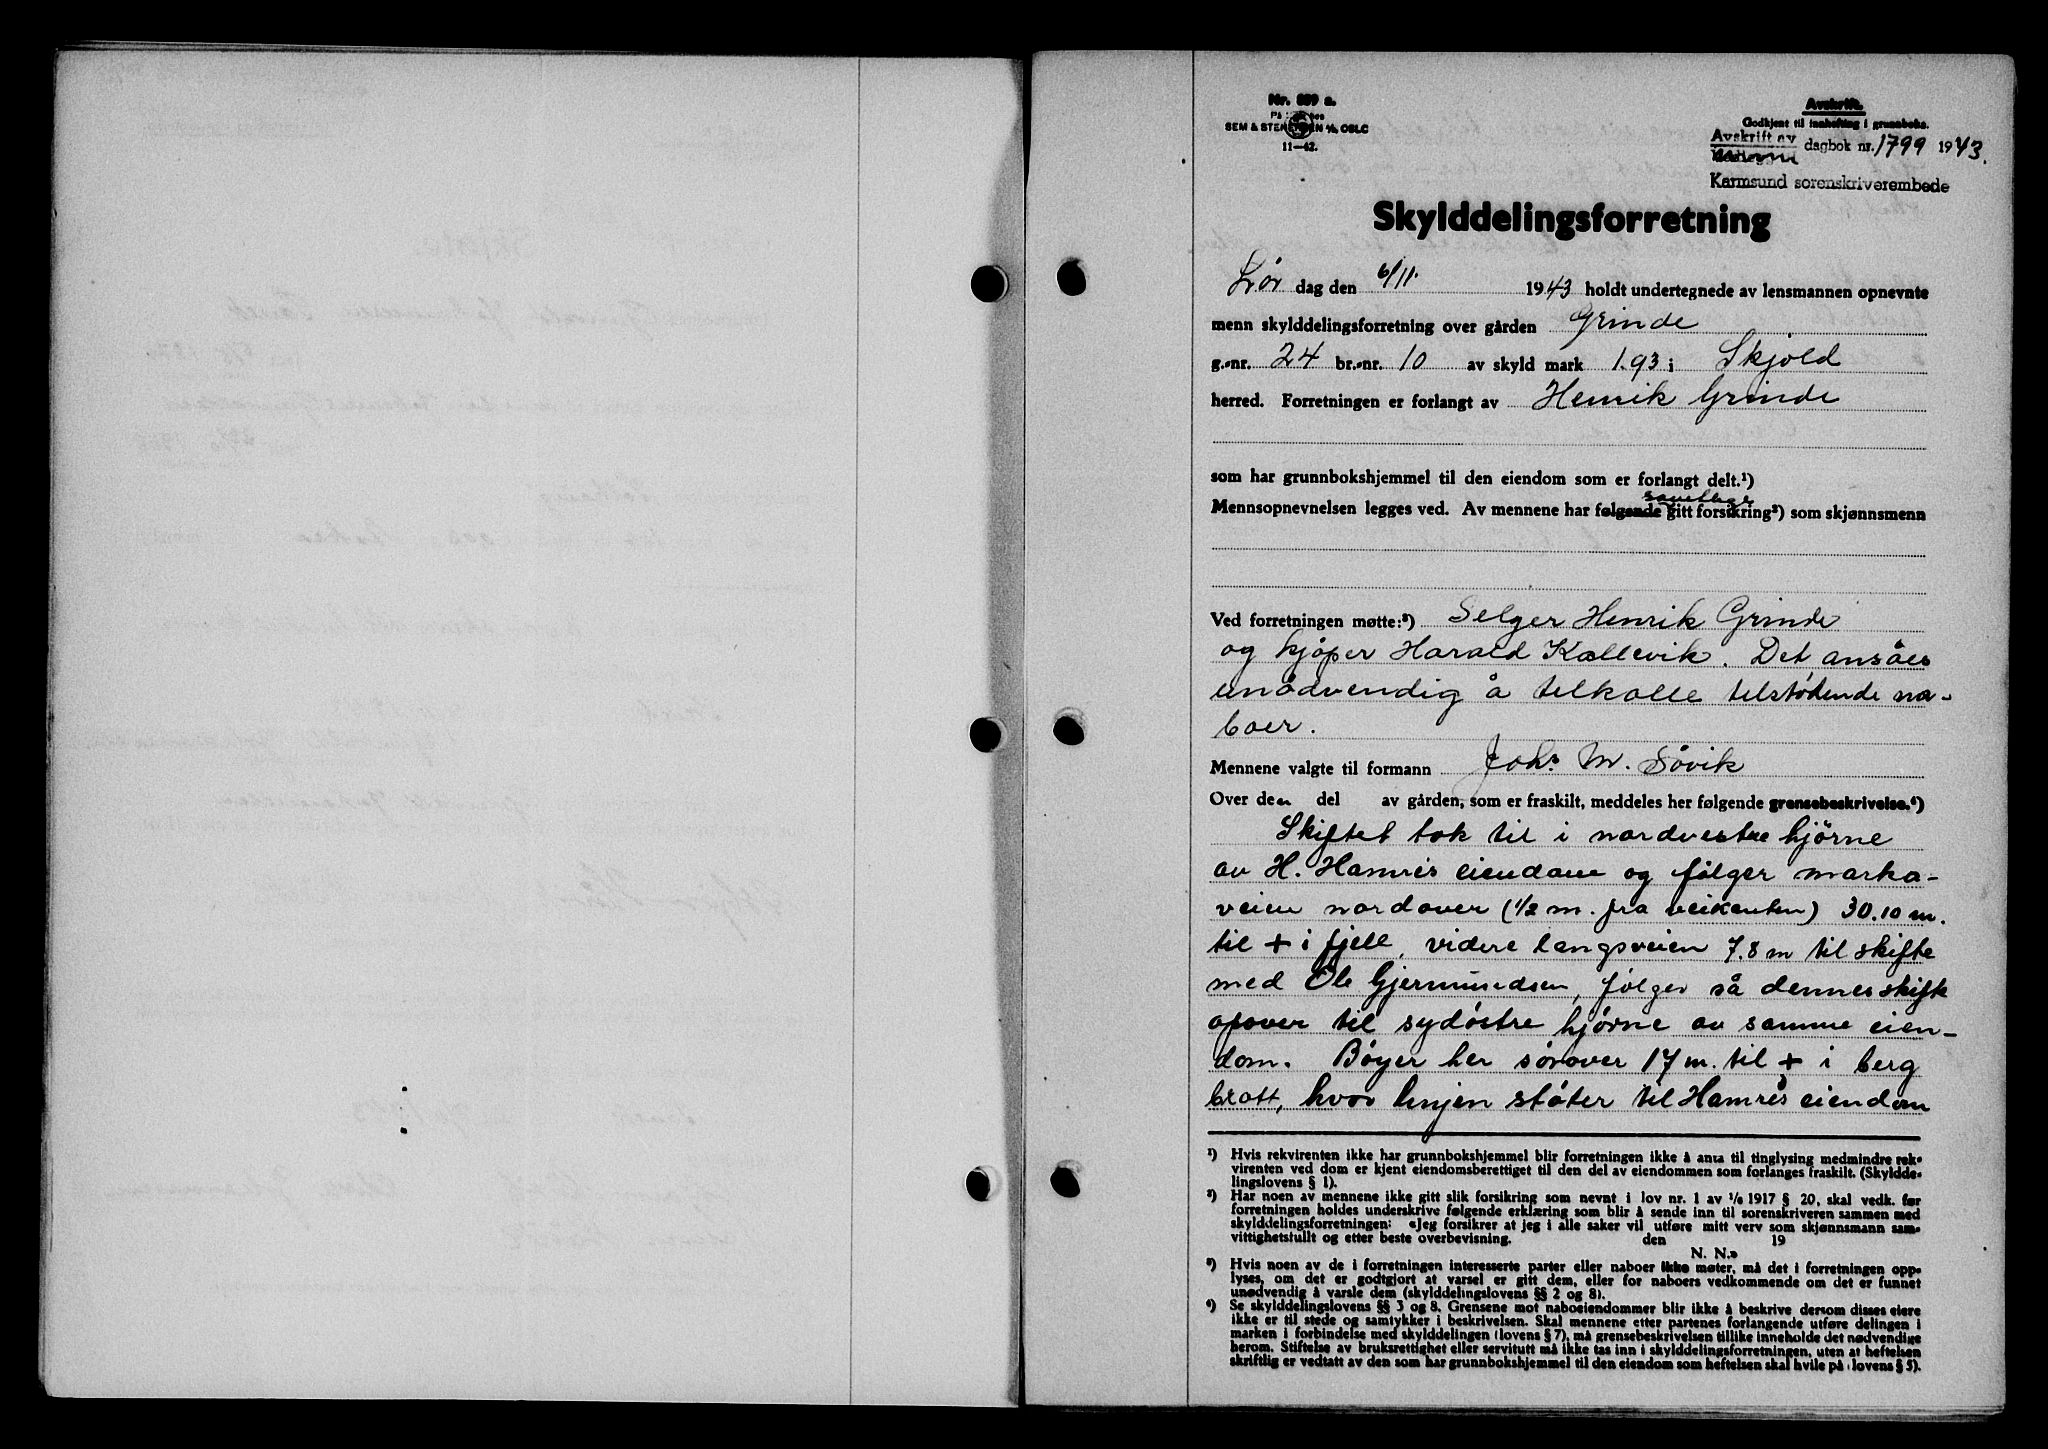 Nr. 889 a.
SEM & STENERSEN A/S OSLO
11—42.
Avskrift.
Godkjent til innhefting i grunnboka.
Avskrift av
dagbok nr. 1799 1943.
Karmsund sorenskriverembede
Skylddelingsforretning
Lør dag den 6/11. 1943 holdt undertegnede av lensmannen opnevnte
menn skylddelingsforretning over gården Grinde
g.-nr. 24 br.-nr. 10 av skyld mark 1.93 i Skjold
herred. Forretningen er forlangt av Henrik Grinde
som har grunnbokshjemmel til den eiendom som er forlangt delt.¹)
samtlige
Mennsopnevnelsen legges ved. Av mennene har følgende gitt forsikring²) som skjønnsmenn
Ved forretningen møtte:³) Selger Henrik Grinde
og kjøper Harald Kallevik. Det ansåes
unødvendig å tilkalle tilstødende na-
boer.
Mennene valgte til formann Johs M. Søvik
Over den del av gården, som er fraskilt, meddeles her følgende grensebeskrivelse.⁴)
Skiftet tok til i nordvestre hjørne
av H. Hamres eiendom og følger marka-
veien nordover (1/2 m. fra veikanten) 30.10 m.
til + i fjell, videre langs veien 7.8 m til skifte
med Ole Gjermundsen, følger så dennes skifte
opover til sydøstre hjørne av samme eien-
dom. Bøyer her sørover 17 m. til + i berg
bratt, hvor linjen støter til Hamres eiendom
¹) Hvis rekvirenten ikke har grunnbokshjemmel blir forretningen ikke å anta til tinglysing medmindre rek-
virenten ved dom er kjent eiendomsberettiget til den del av eiendommen som forlanges fraskilt. (Skyldde-
lingslovens § 1).
²) Har noen av mennene ikke gitt slik forsikring som nevnt i lov nr. 1 av 1/6 1917 § 20, skal vedk. før
forretningen holdes underskrive følgende erklæring som blir å sende inn til sorenskriveren sammen med
skylddelingsforretningen: «Jeg forsikrer at jeg i alle saker vil utføre mitt verv som skjønnsmann sam-
vittighetsfullt og etter beste overbevisning. den 19
N. N.»
³) Hvis noen av de i forretningen interesserte parter eller naboer ikke møter, må det i forretningen opp-
lyses, om det er godtgjort at varsel er gitt dem, eller for naboers vedkommende om det er funnet
unødvendig å varsle dem (skylddelingslovens §§ 2 og 8).
⁴) Se skylddelingslovens §§ 3 og 8. Grensene mot naboeiendommer blir ikke å beskrive dersom disses eiere
ikke er til stede og samtykker i beskrivelsen. Skal mennene etter partenes forlangende utføre delingen i
marken i forbindelse med skylddelingen (lovens § 7), må grensebeskrivelsen tillike inneholde det nødvendige
herom. Stiftelse av bruksrettighet eller servitutt må ikke tas inn i skylddelingsforretningen, uten at heftelsen
skriftlig er vedtatt av den som har grunnbokshjemmel til den eiendom som heftelsen skal hvile på (lovens § 5).